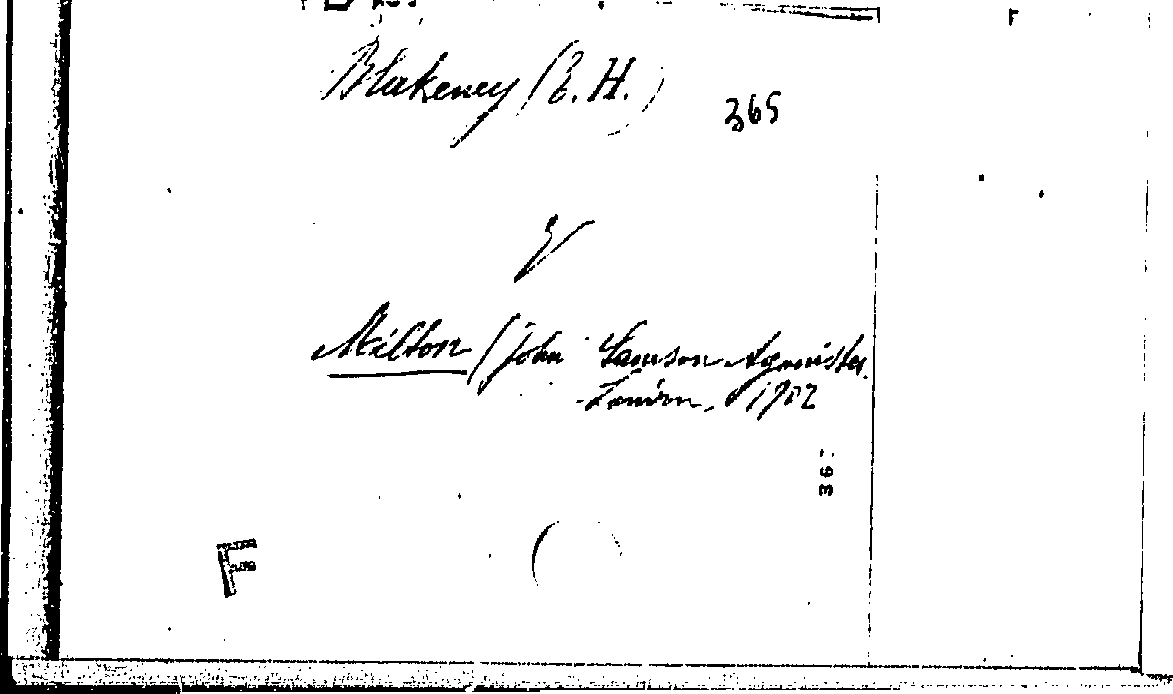 Blakeney (E. H.)
365
V
Milton (John Samson Agonistes.
London, 1902
36
F
F